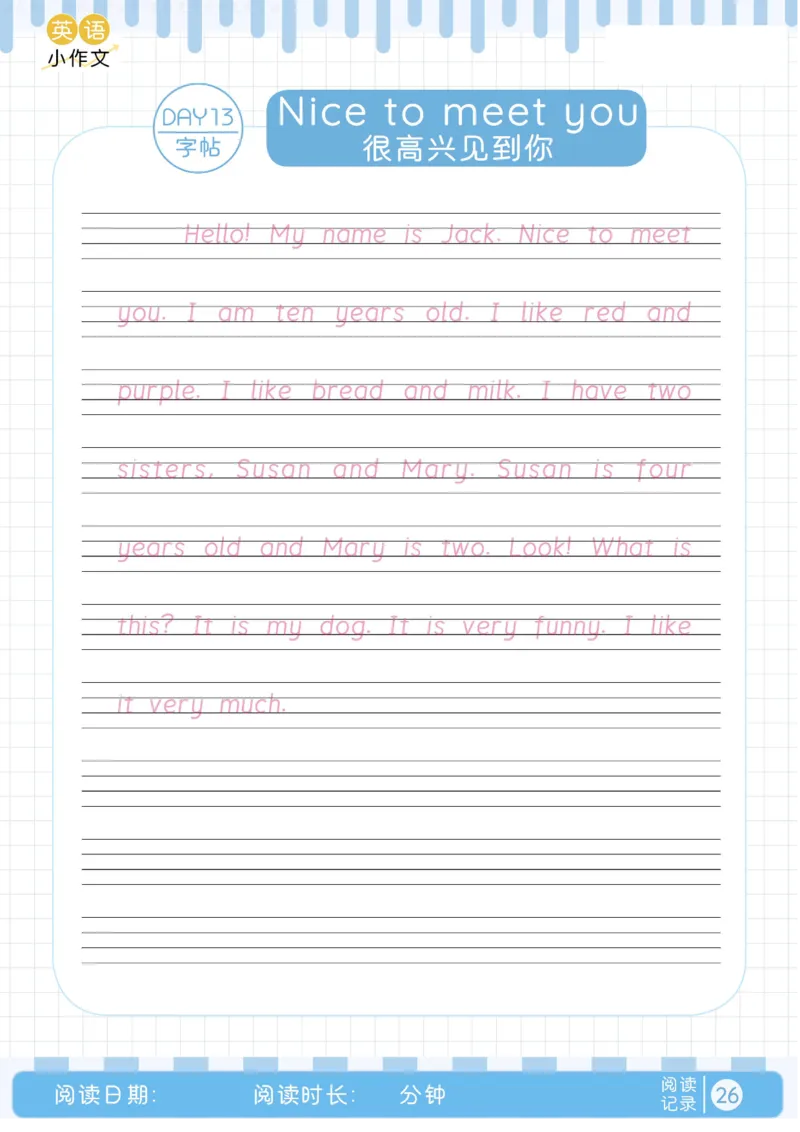 英语
小作文
DAY13
字帖
Nice to meet you
很高兴见到你
Hello! My name is Jack. Nice to meet
you. I am ten years old. I like red and
purple. I like bread and milk. I have two
sisters, Susan and Mary. Susan is four
years old and Mary is two. Look! What is
this? It is my dog. It is very funny. I like
it very much.
阅读日期:
阅读时长: 分钟
阅读
记录
26